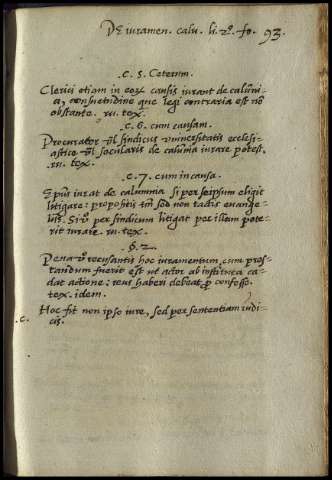 De iuramen. calu. li. 2º. fo. 93.
c. 5. Ceterum.
Clerici etiam in eorum causis iurant de calūni-
a, consuetudine que legi contraria est nō
obstante. ru. tex.
c. 6. cum causam.
Procurator vel sindicus vniuersitatis eccles-
astice vel secularis de calunia iurare potest.
ru. tex.
c. 7. cum in causa.
Epūs iurat de calumnia si per seipsum eligit
litigare: propositis tm̄ sed non tactis euange-
lijs. Si vº per sindicum litigat per illum pote-
rit iurare. ru. tex.
§. 2.
Pena vº recusantis hoc iuramentum cum pres-
tandum fuerit est ut actor ab instituta ca-
dat actione: reus haberi debeat p confesso.
tex. idem.
Hoc fit non ipso iure, sed per sententiam iudi-
.c. cis.